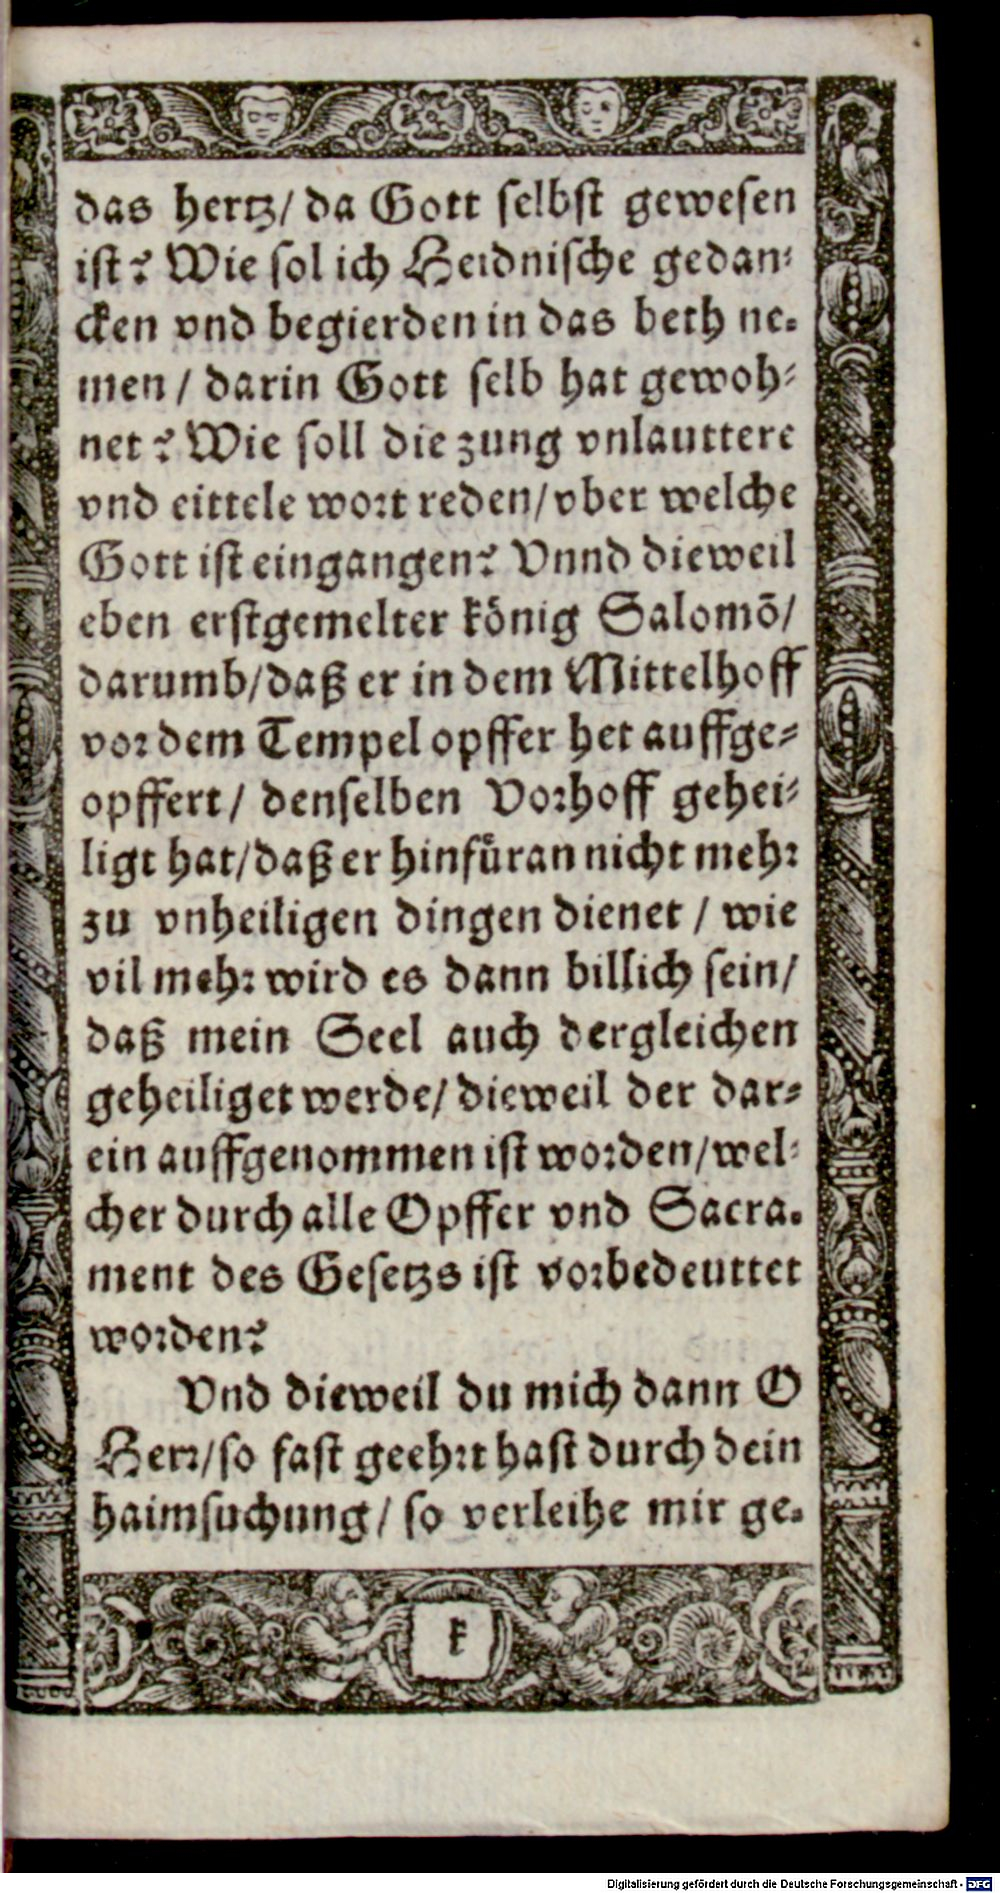 das hertz/ da Gott selbst gewesen
ist? Wie sol ich Heidnische gedan-
cken vnd begierden in das beth ne-
men / darin Gott selb hat gewoh-
net? Wie soll die zung vnlauttere
vnd eittele wort reden/ vber welche
Gott ist eingangen? Vnnd dieweil
eben erstgemelter könig Salomō/
darumb/ daß er in dem Mittelhoff
vor dem Tempel opffer het auffge-
opffert/ denselben Vorhoff gehei-
ligt hat/ daß er hinfüran nicht mehr
zu vnheiligen dingen dienet / wie
vil mehr wird es dann billich sein/
daß mein Seel auch dergleichen
geheiliget werde/ dieweil der dar-
ein auffgenommen ist worden/ wel-
cher durch alle Opffer vnd Sacra-
ment des Gesetzs ist vorbedeuttet
worden?
Vnd dieweil du mich dann O
Herr/ so fast geehrt hast durch dein
haimsuchung/ so verleihe mir ge-
k
Digitalisierung gefördert durch die Deutsche Forschungsgemeinschaft - DFG